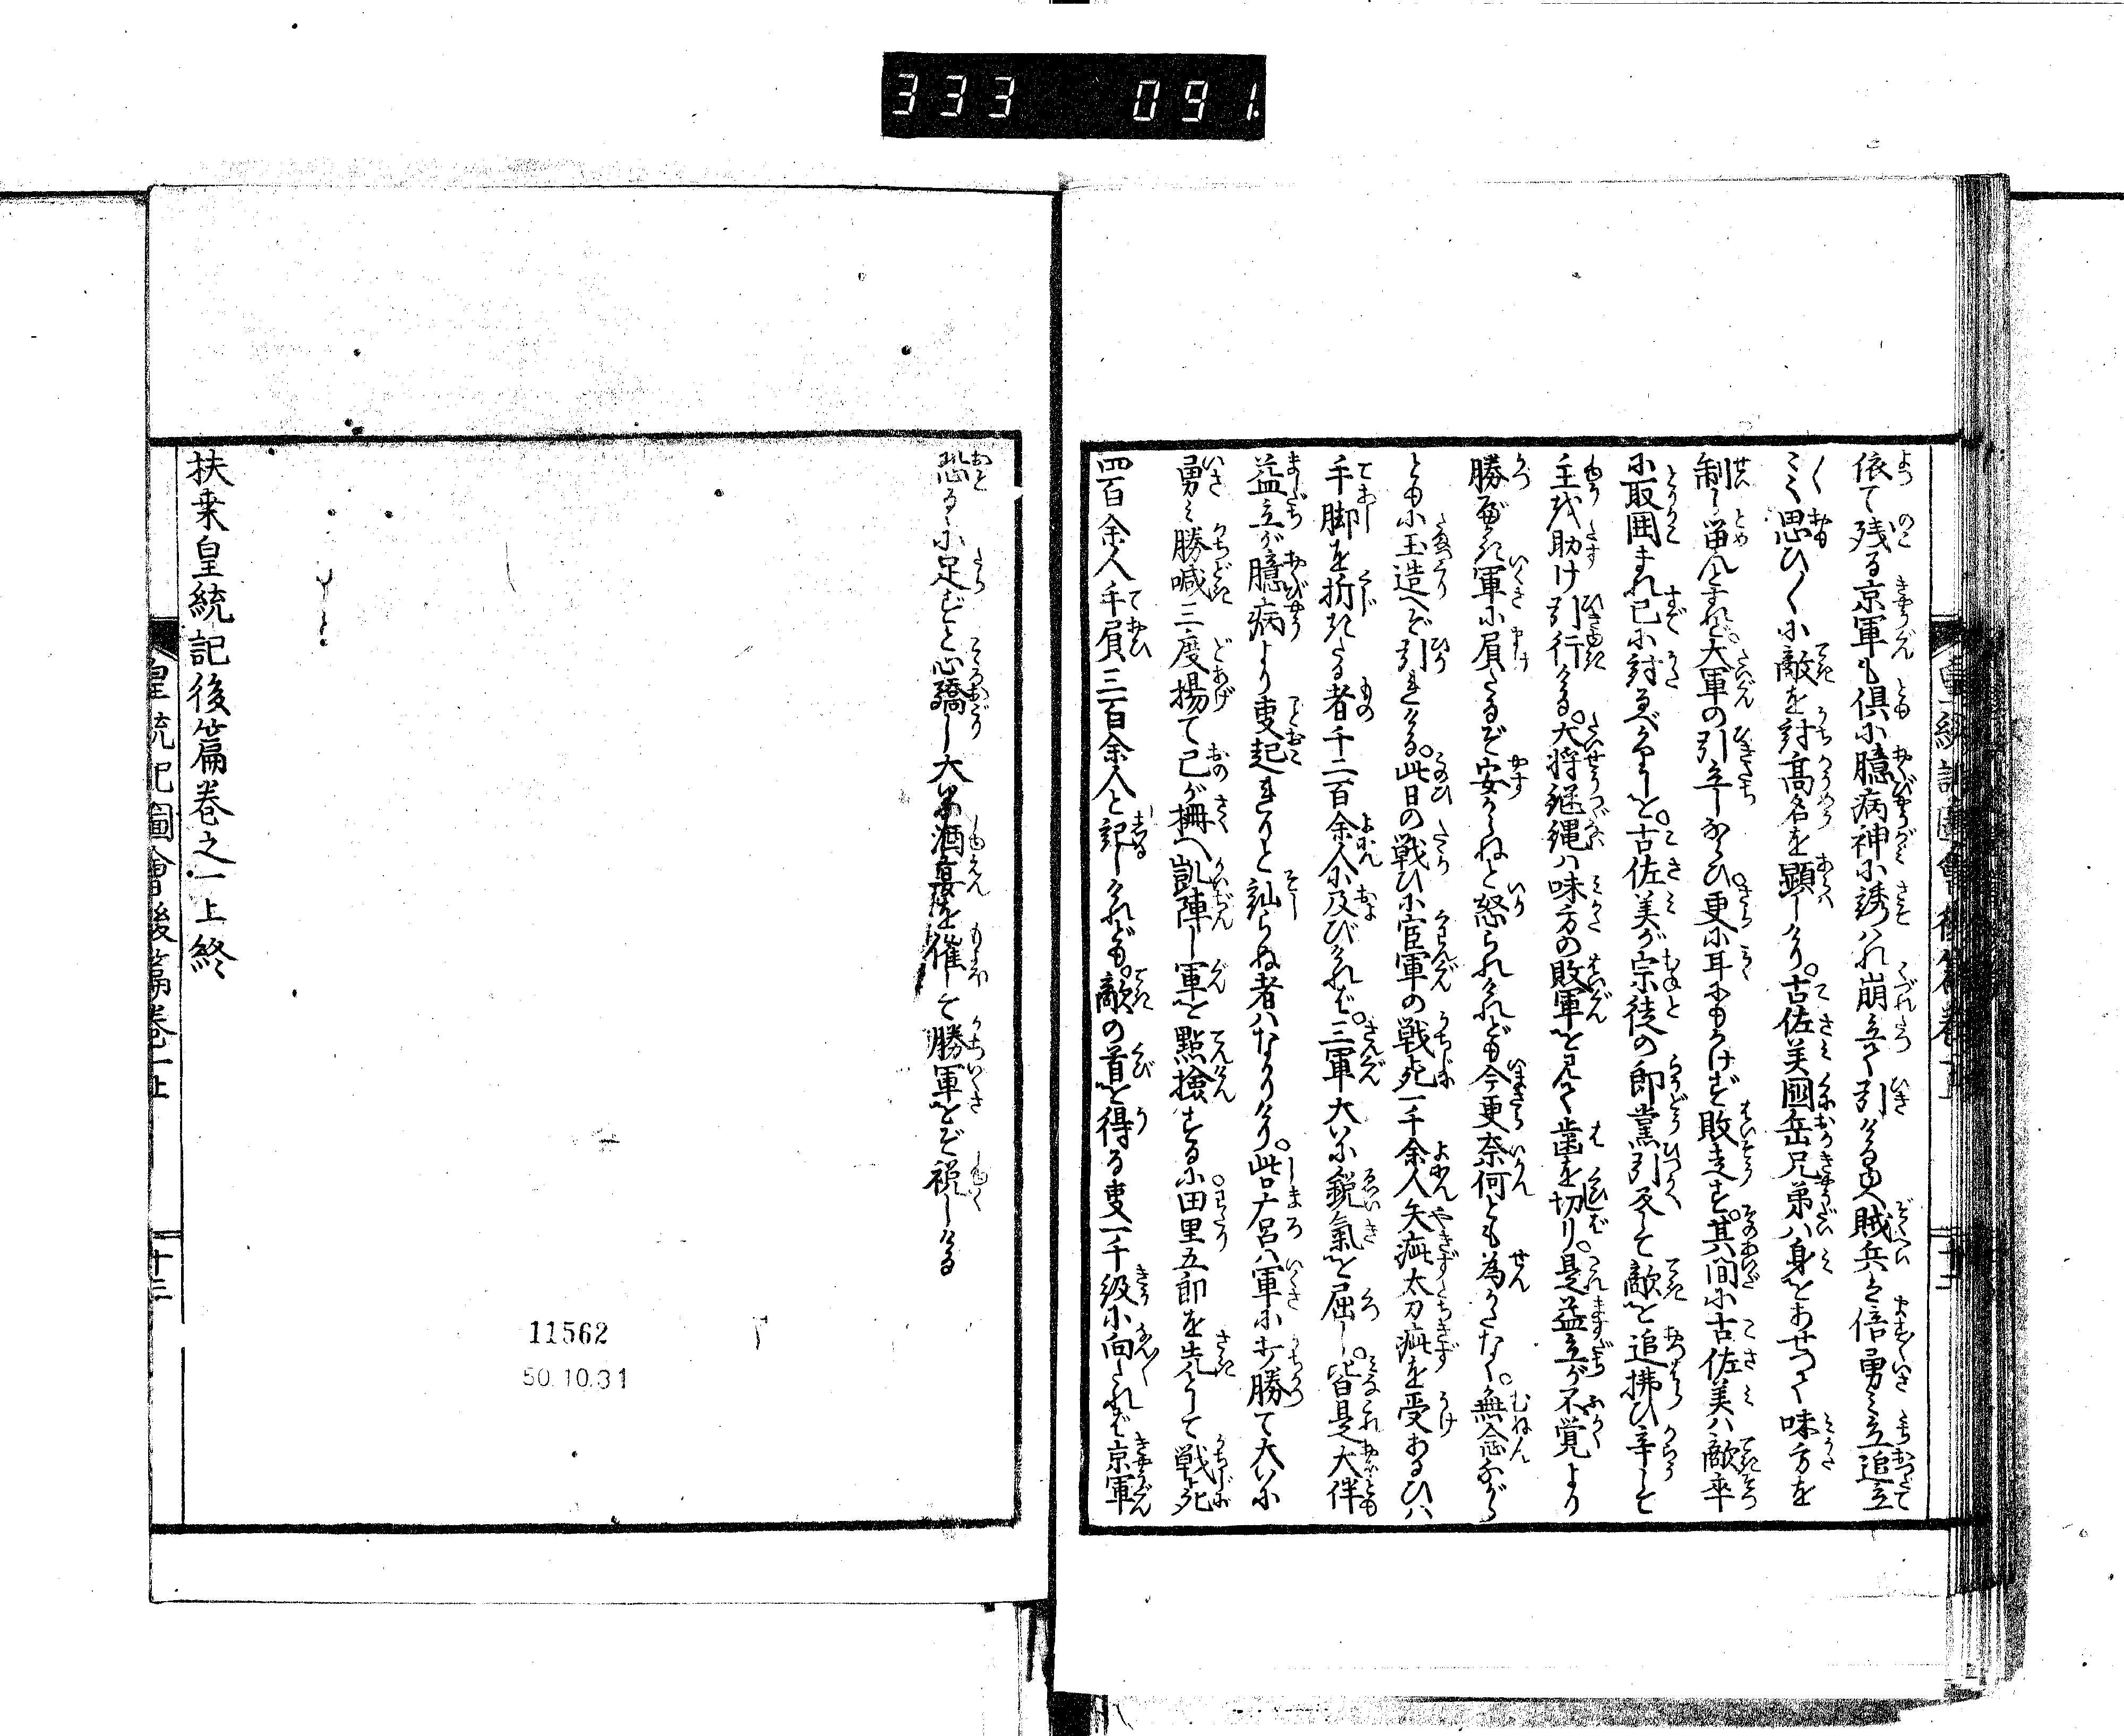 333 091
依て残る京軍も倶に臆病神に誘はれ崩立て引ける故賊兵は倍勇み立追立
〳〵思ひ〳〵に敵を討高名を顕しけり。古佐美國岳兄弟ハ身をあせつて味方を
制し留んとすれど。大軍の引立しならひ。更に耳にもかけず敗走す。其間に古佐美ハ敵卒
に取囲まれ已に討るべかりしを。古佐美が宗徒の郎党引返して敵を追拂ひ辛して
主を助け引行ける。大将継縄ハ味方の敗軍を見て歯を切り。是益立が不覚より
勝べき軍に負たるぞ安からねと怒られけれども今更奈何とも為かたなく。無念ながら
とも小玉造へぞ引れける。此日の戦ひに官軍の戦死一千余人矢疵太刀疵を受あるひハ
手脚を折きたる者千二百余人に及びけれバ。三軍大に鋭氣を屈し。皆是大伴
益立が臆病より事起れりと訕らぬ者ハなかりけり。此ナ呂ハ軍にお勝て大いに
勇み勝喊三度揚て己が柵へ凱陣し軍を點撿するに田里五郎を先として戦死
四百余人手屓三百余人と記しけれども。敵の首を得る事一千級に向たれバ京軍
恐るに足ずと心驕し大に酒宴を催して勝軍をぞ祝しける
扶桒皇統記後篇巻之一上終
皇統記圖會後篇巻一上
十三
11562
50.10.31